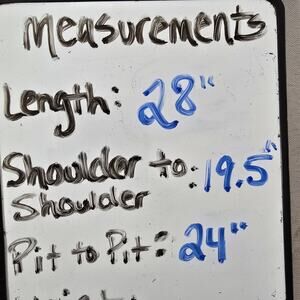 Measurements
Length: 28"
Shoulder to: 19.5"
Shoulder
Pit to Pit: 24"